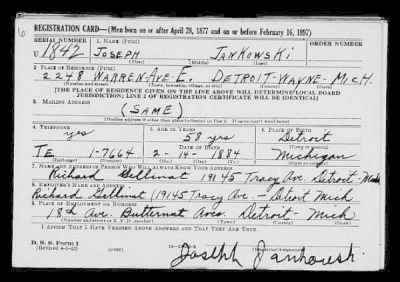 REGISTRATION CARD—(Men born on or after April 28, 1877 and on or before February 16, 1897)
SERIAL NUMBER 1. NAME (Print) ORDER NUMBER
U 1842 JOSEPH JANKOWSKI
(First) (Middle) (Last)
2. PLACE OF RESIDENCE (Print)
2248 WARREN-AVE-E. DETROIT-WAYNE-MICH.
(Number and street) (Town, township, village, or city) (County) (State)
[THE PLACE OF RESIDENCE GIVEN ON THE LINE ABOVE WILL DETERMINE LOCAL BOARD
JURISDICTION; LINE 2 OF REGISTRATION CERTIFICATE WILL BE IDENTICAL]
3. MAILING ADDRESS
(SAME)
[Mailing address if other than place indicated on line 2. If same insert word same]
4. TELEPHONE 5. AGE IN YEARS 6. PLACE OF BIRTH
yes 58 yrs Detroit
DATE OF BIRTH (Town or county)
TE 1-7664 2-14-1884 Michigan
(Exchange) (Number) (Mo.) (Day) (Yr.) (State or country)
7. NAME AND ADDRESS OF PERSON WHO WILL ALWAYS KNOW YOUR ADDRESS
Richard 19145 Tracy Ave. Detroit-Mich
8. EMPLOYER'S NAME AND ADDRESS
Richard (19145 Tracy Ave. - Detroit Mich
9. PLACE OF EMPLOYMENT OR BUSINESS
18th Ave. Butternut Ave. Detroit- Mich
(Number and street or R. F. D. number) (Town) (County) (State)
I AFFIRM THAT I HAVE VERIFIED ABOVE ANSWERS AND THAT THEY ARE TRUE.
D. S. S. Form 1
(Revised 4-1-42) (over)
Joseph Jankowski